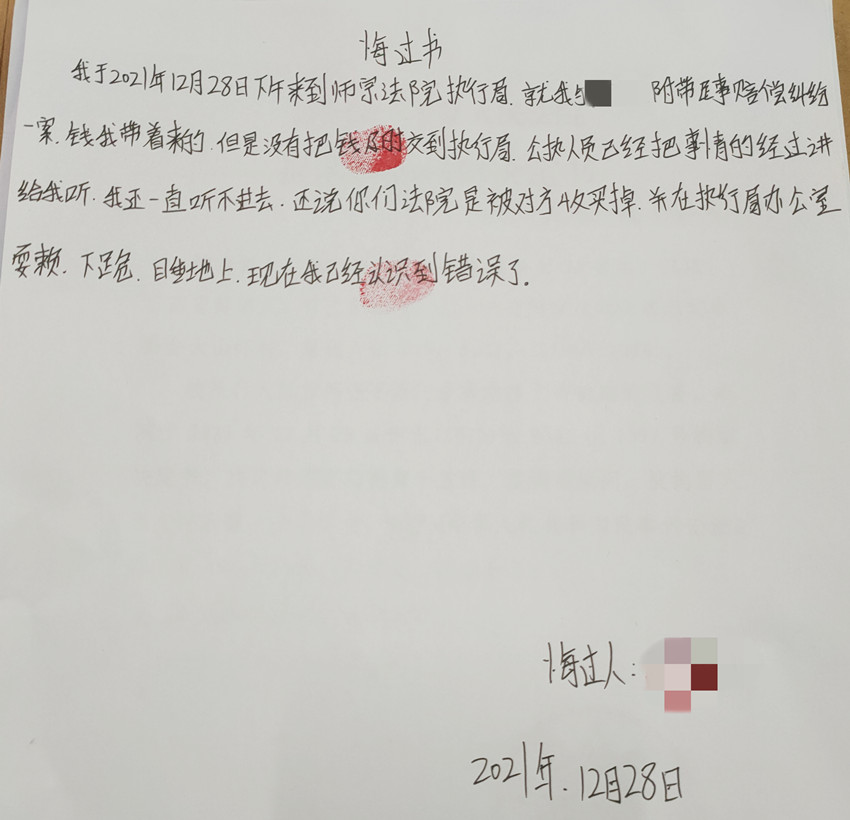 悔过书
我于2021年12月28日下午来到师宗法院执行局.就我与 附带民事赔偿纠纷
一案.钱我带着来的.但是没有把钱及时交到执行局.今执人员已经把事情的经过讲
给我听.我还一直听不进去.还说你们法院是被对方收买掉.并在执行局办公室
耍赖.下跪.睡地上.现在我已经认识到错误了.
悔过人:
2021年.12月28日